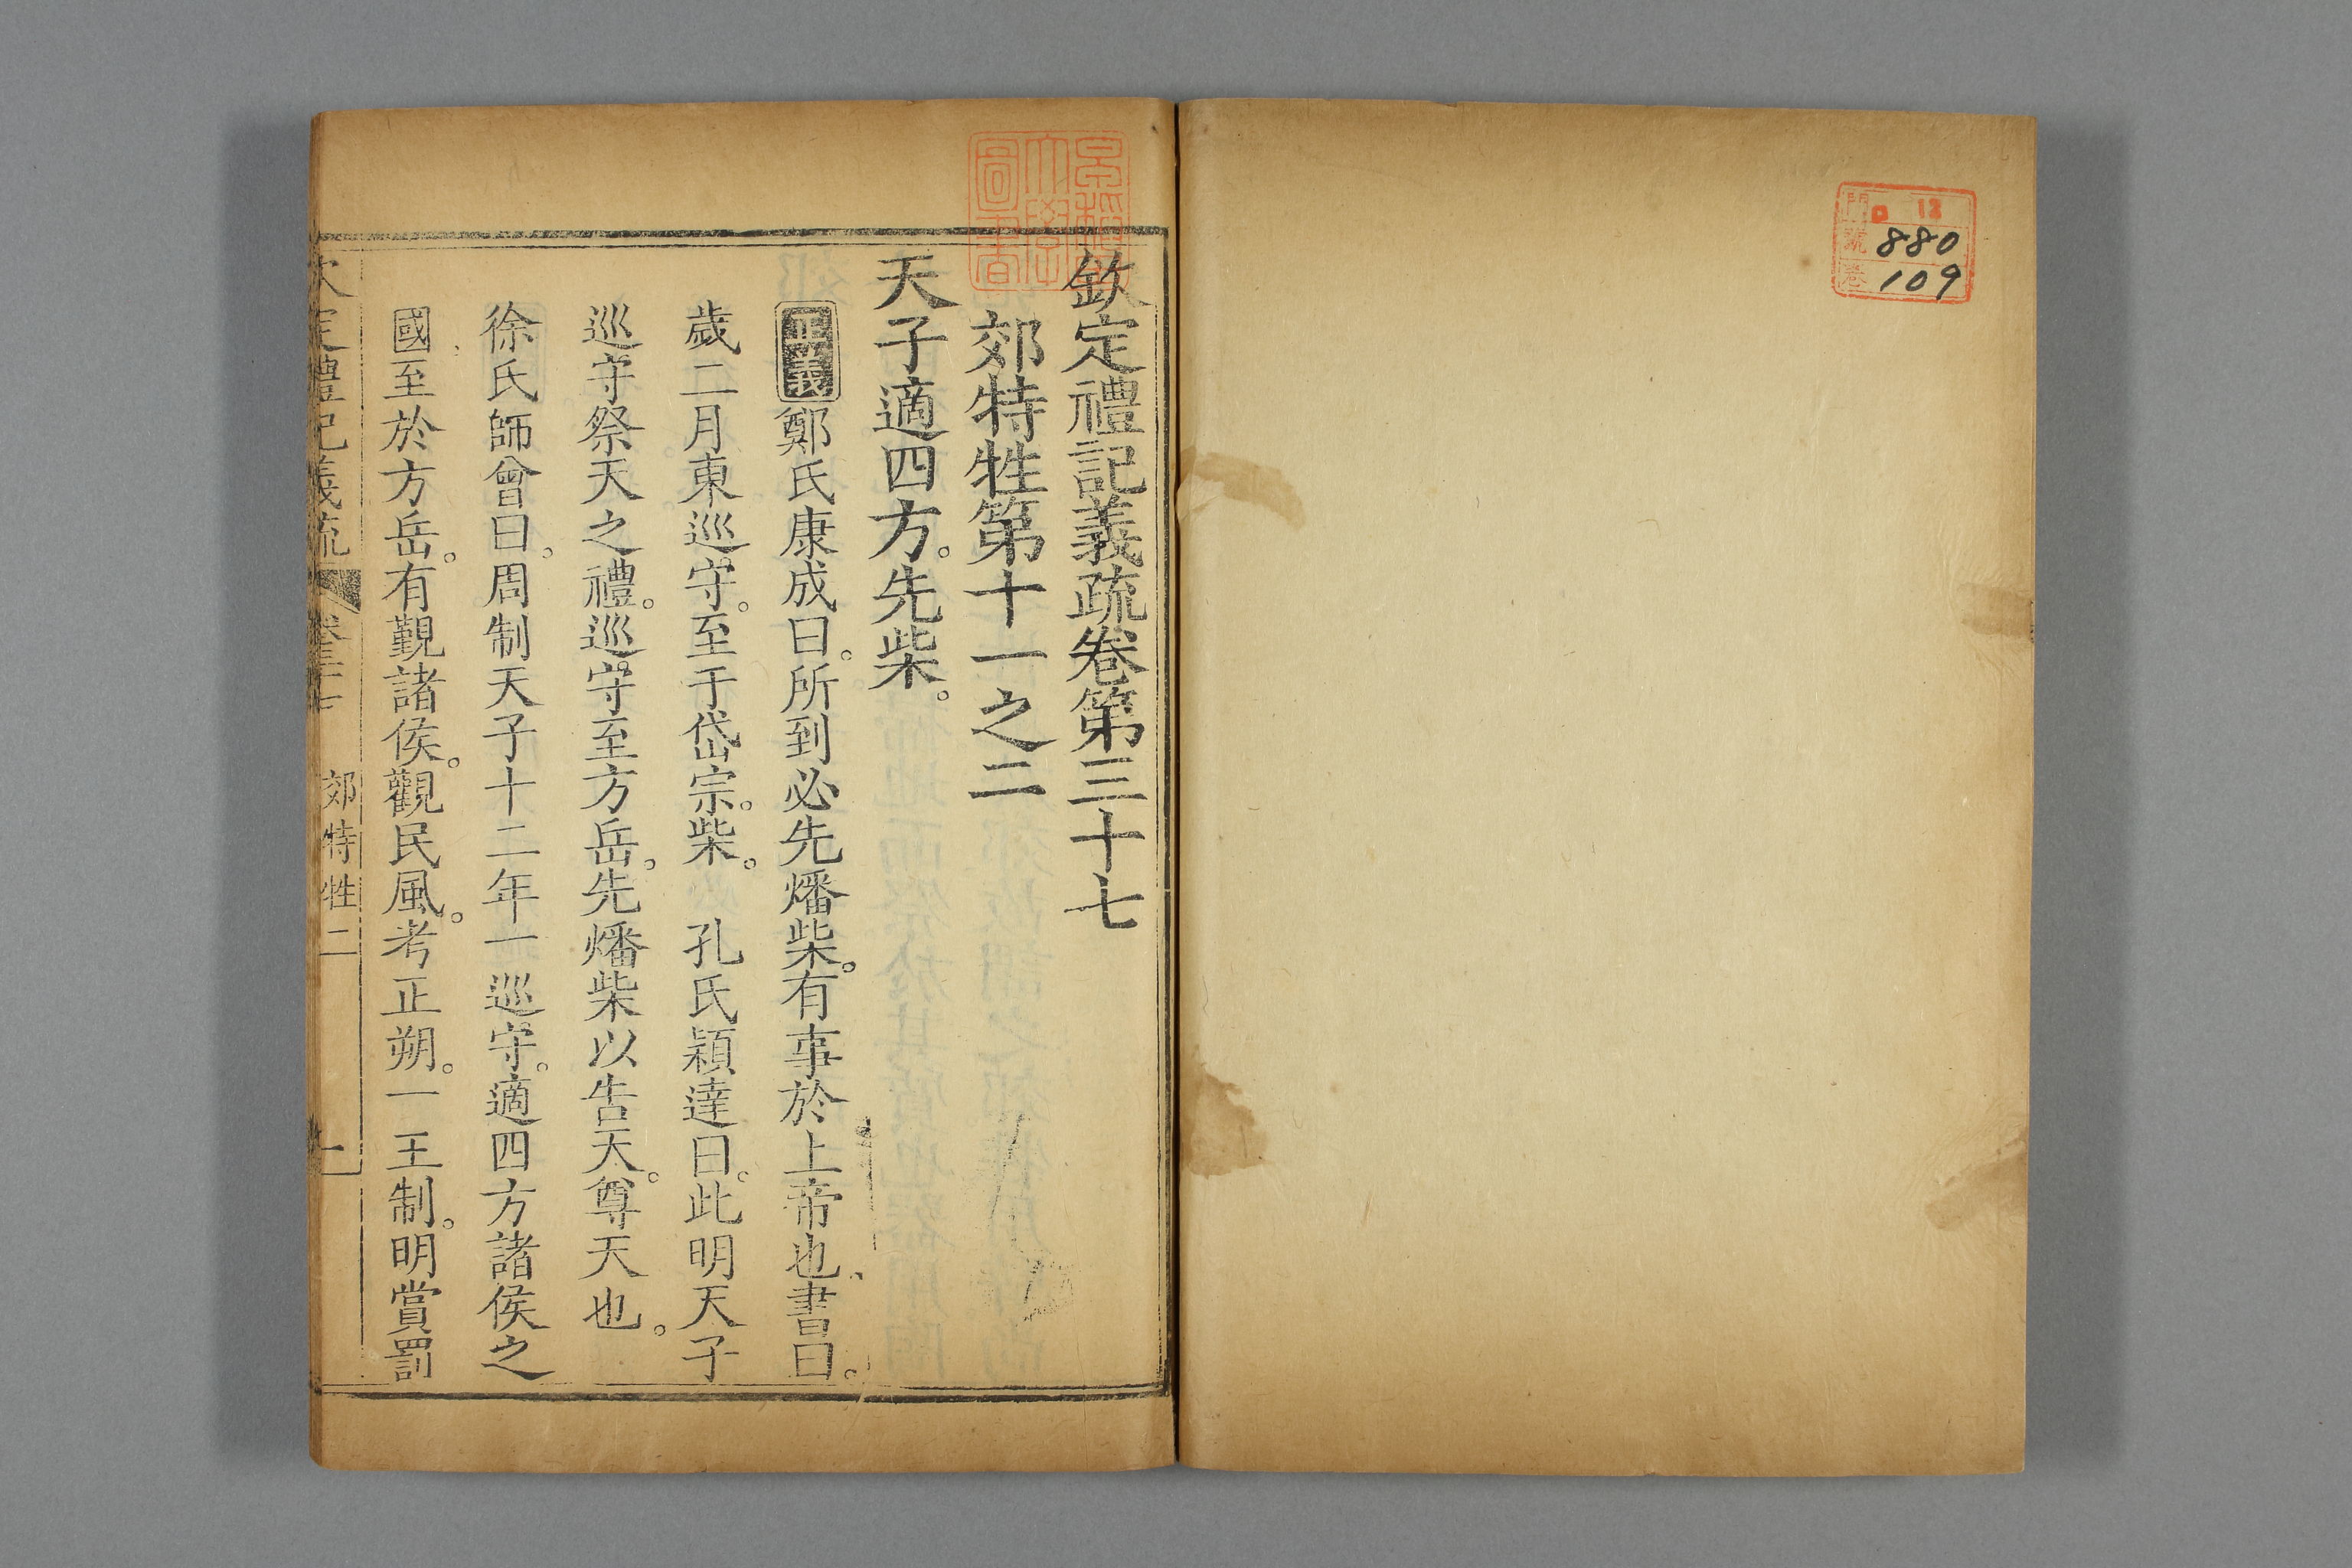 門 ロ 12
號 880
卷 109
早稻田大學圖書
欽定禮記義疏卷第三十七
郊特牲第十一之二
天子適四方。先柴。
正義 鄭氏康成曰。所到必先燔柴。有事於上帝也。書曰。
歲二月東巡守。至于岱宗。柴。 孔氏穎達曰。此明天子
巡守祭天之禮。巡守至方岳。先燔柴以告天。尊天也。
徐氏師曾曰。周制天子十二年一巡守。適四方諸侯之
國至於方岳。有覲諸侯。觀民風。考正朔。一王制。明賞罰
欽定禮記義疏 卷三十七 郊特牲二 一